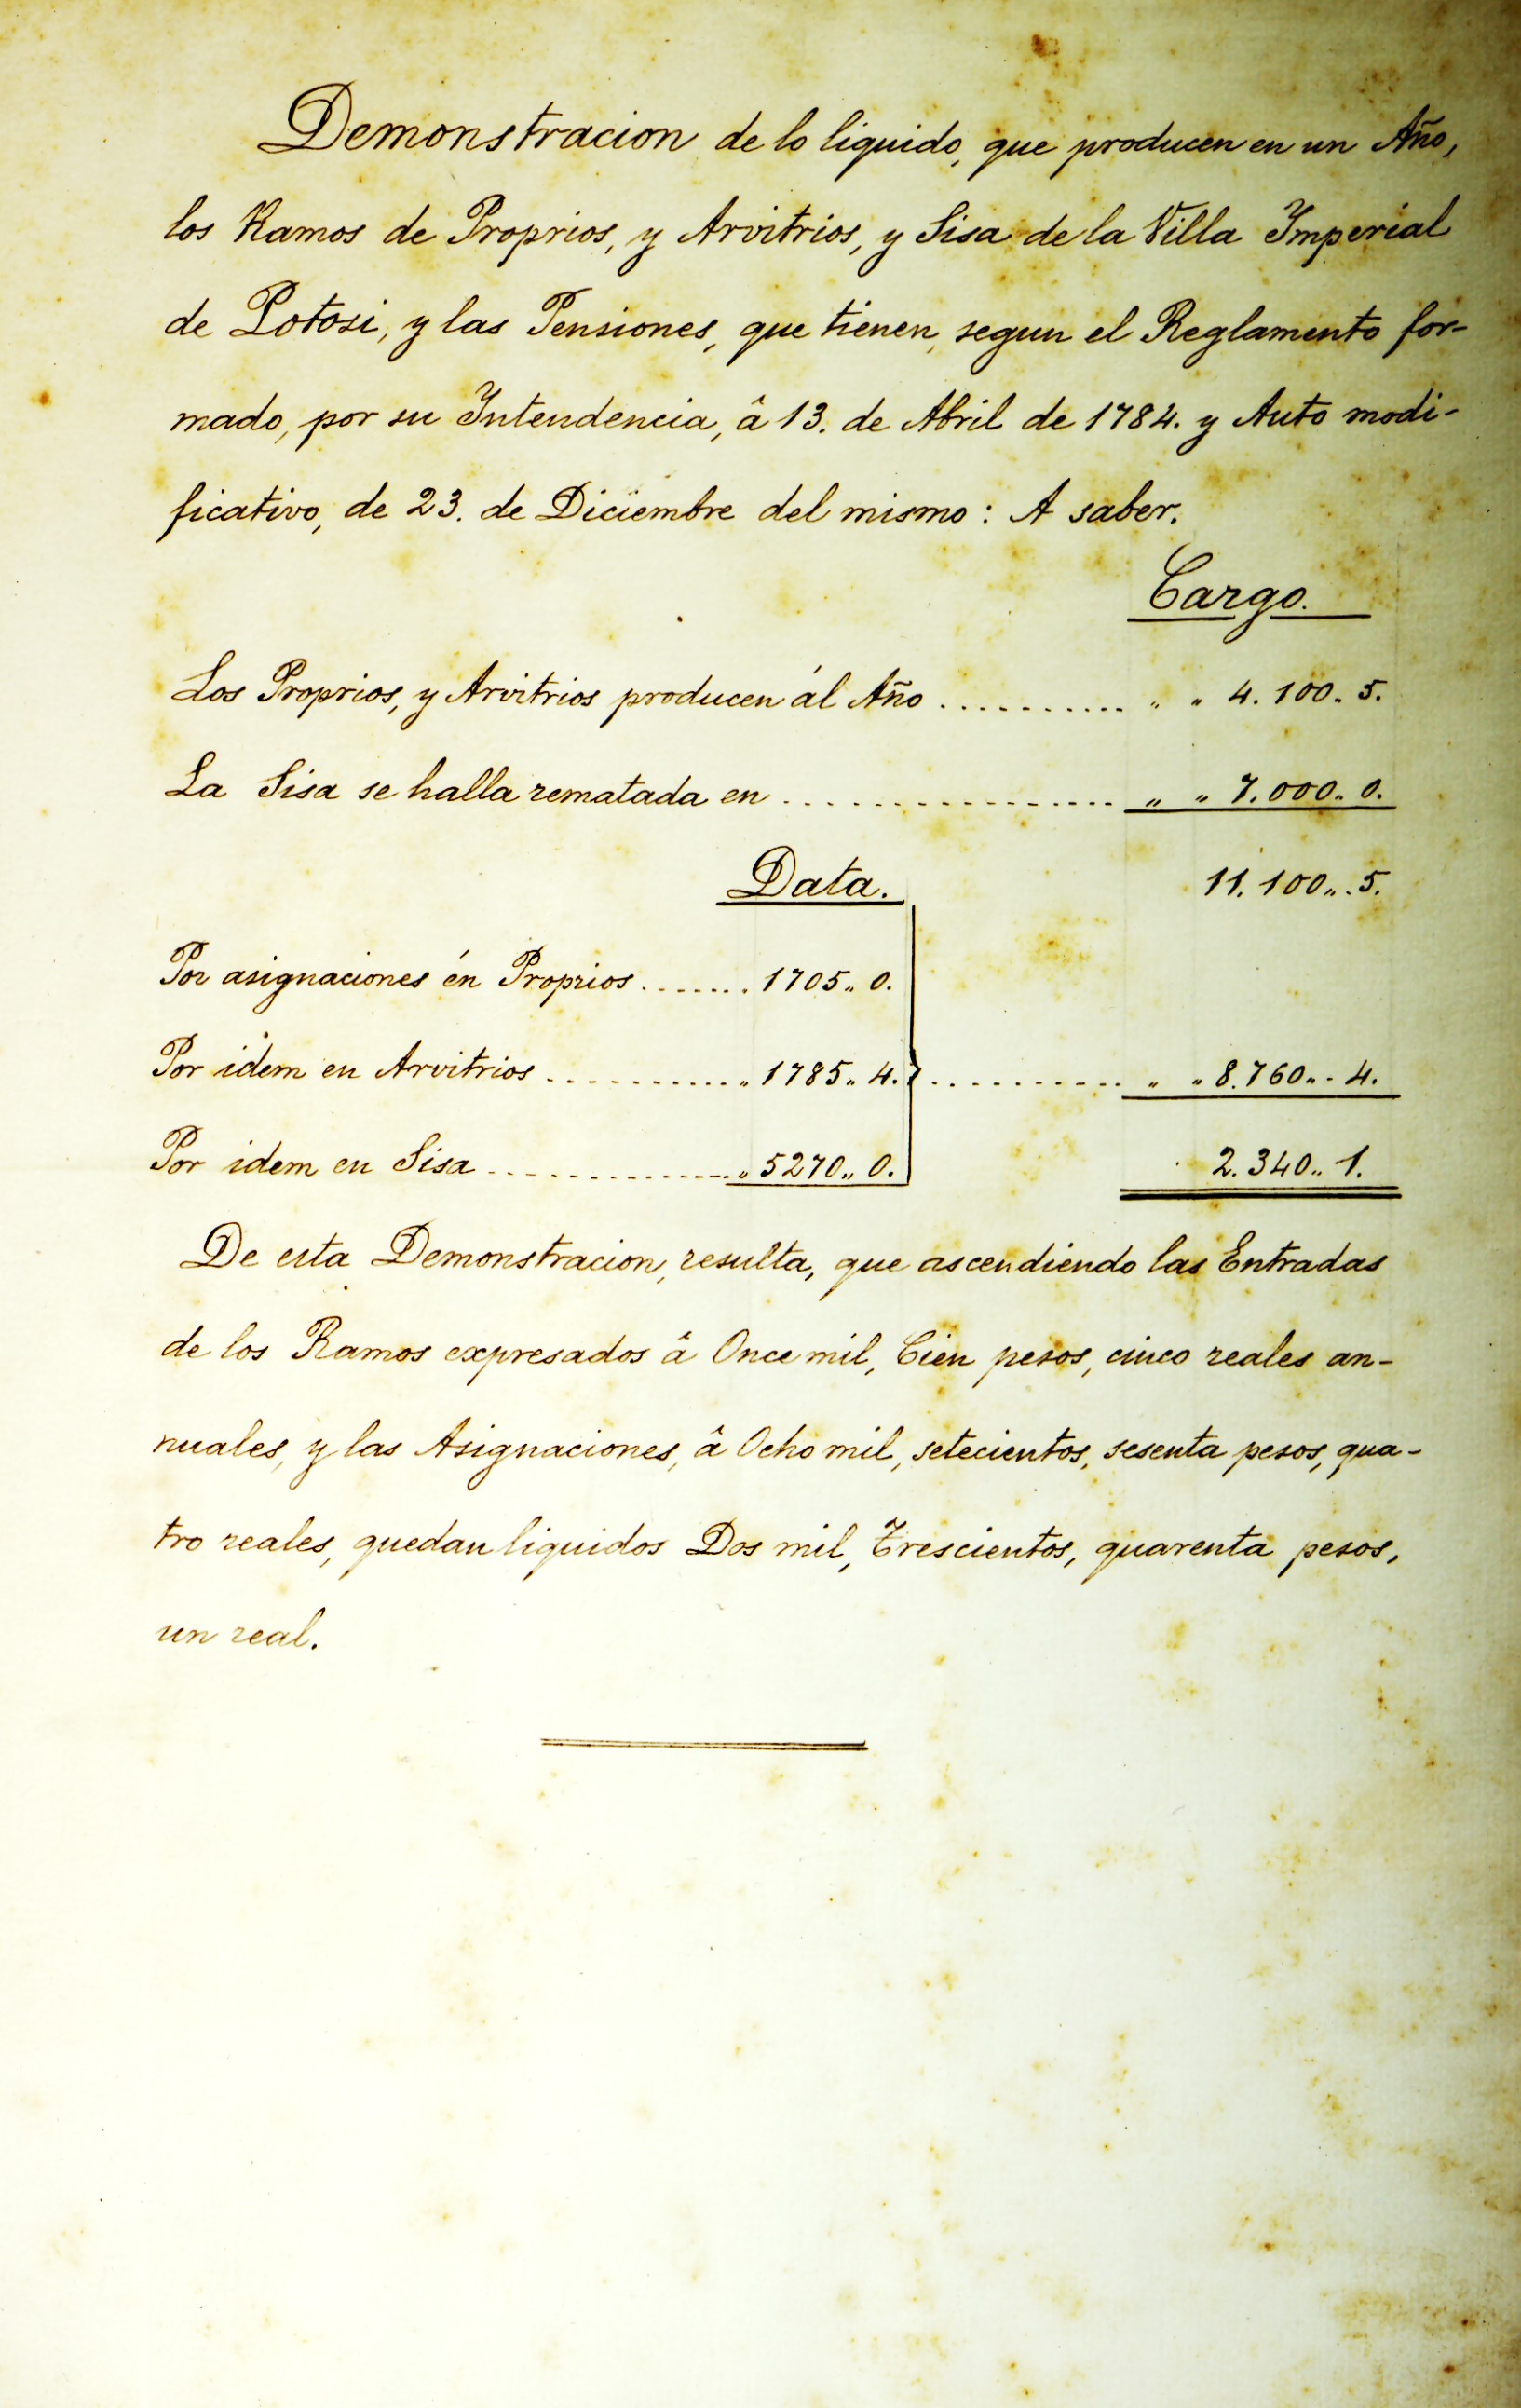 Demonstracion de lo liquido, que producen en un Año,
los Ramos de Proprios, y Arvitrios, y Sisa de la Villa Imperial
de Potosi, y las Pensiones, que tienen, segun el Reglamento for-
mado, por su Intendencia, â 13. de Abril de 1784. y Auto modi-
ficativo, de 23. de Diciembre del mismo: A saber.
Cargo.
Los Proprios, y Arvitrios producen ál Año ........... " " 4.100.. 5.
La Sisa se halla rematada en ................. " " 7.000.. 0.
Data. 11.100.. 5.
Por asignaciones én Proprios ....... 1705.. 0.
Por idem en Arvitrios ........... " 1785.. 4. } .......... " " 8.760.. 4.
Por idem en Sisa ............. " 5270.. 0. 2.340.. 1.
De esta Demonstracion, resulta, que ascendiendo las Entradas
de los Ramos expresados â Once mil, Cien pesos, cinco reales an-
nuales, y las Asignaciones, â Ocho mil, setecientos, sesenta pesos, qua-
tro reales, quedan liquidos Dos mil, Trescientos, quarenta pesos,
un real.